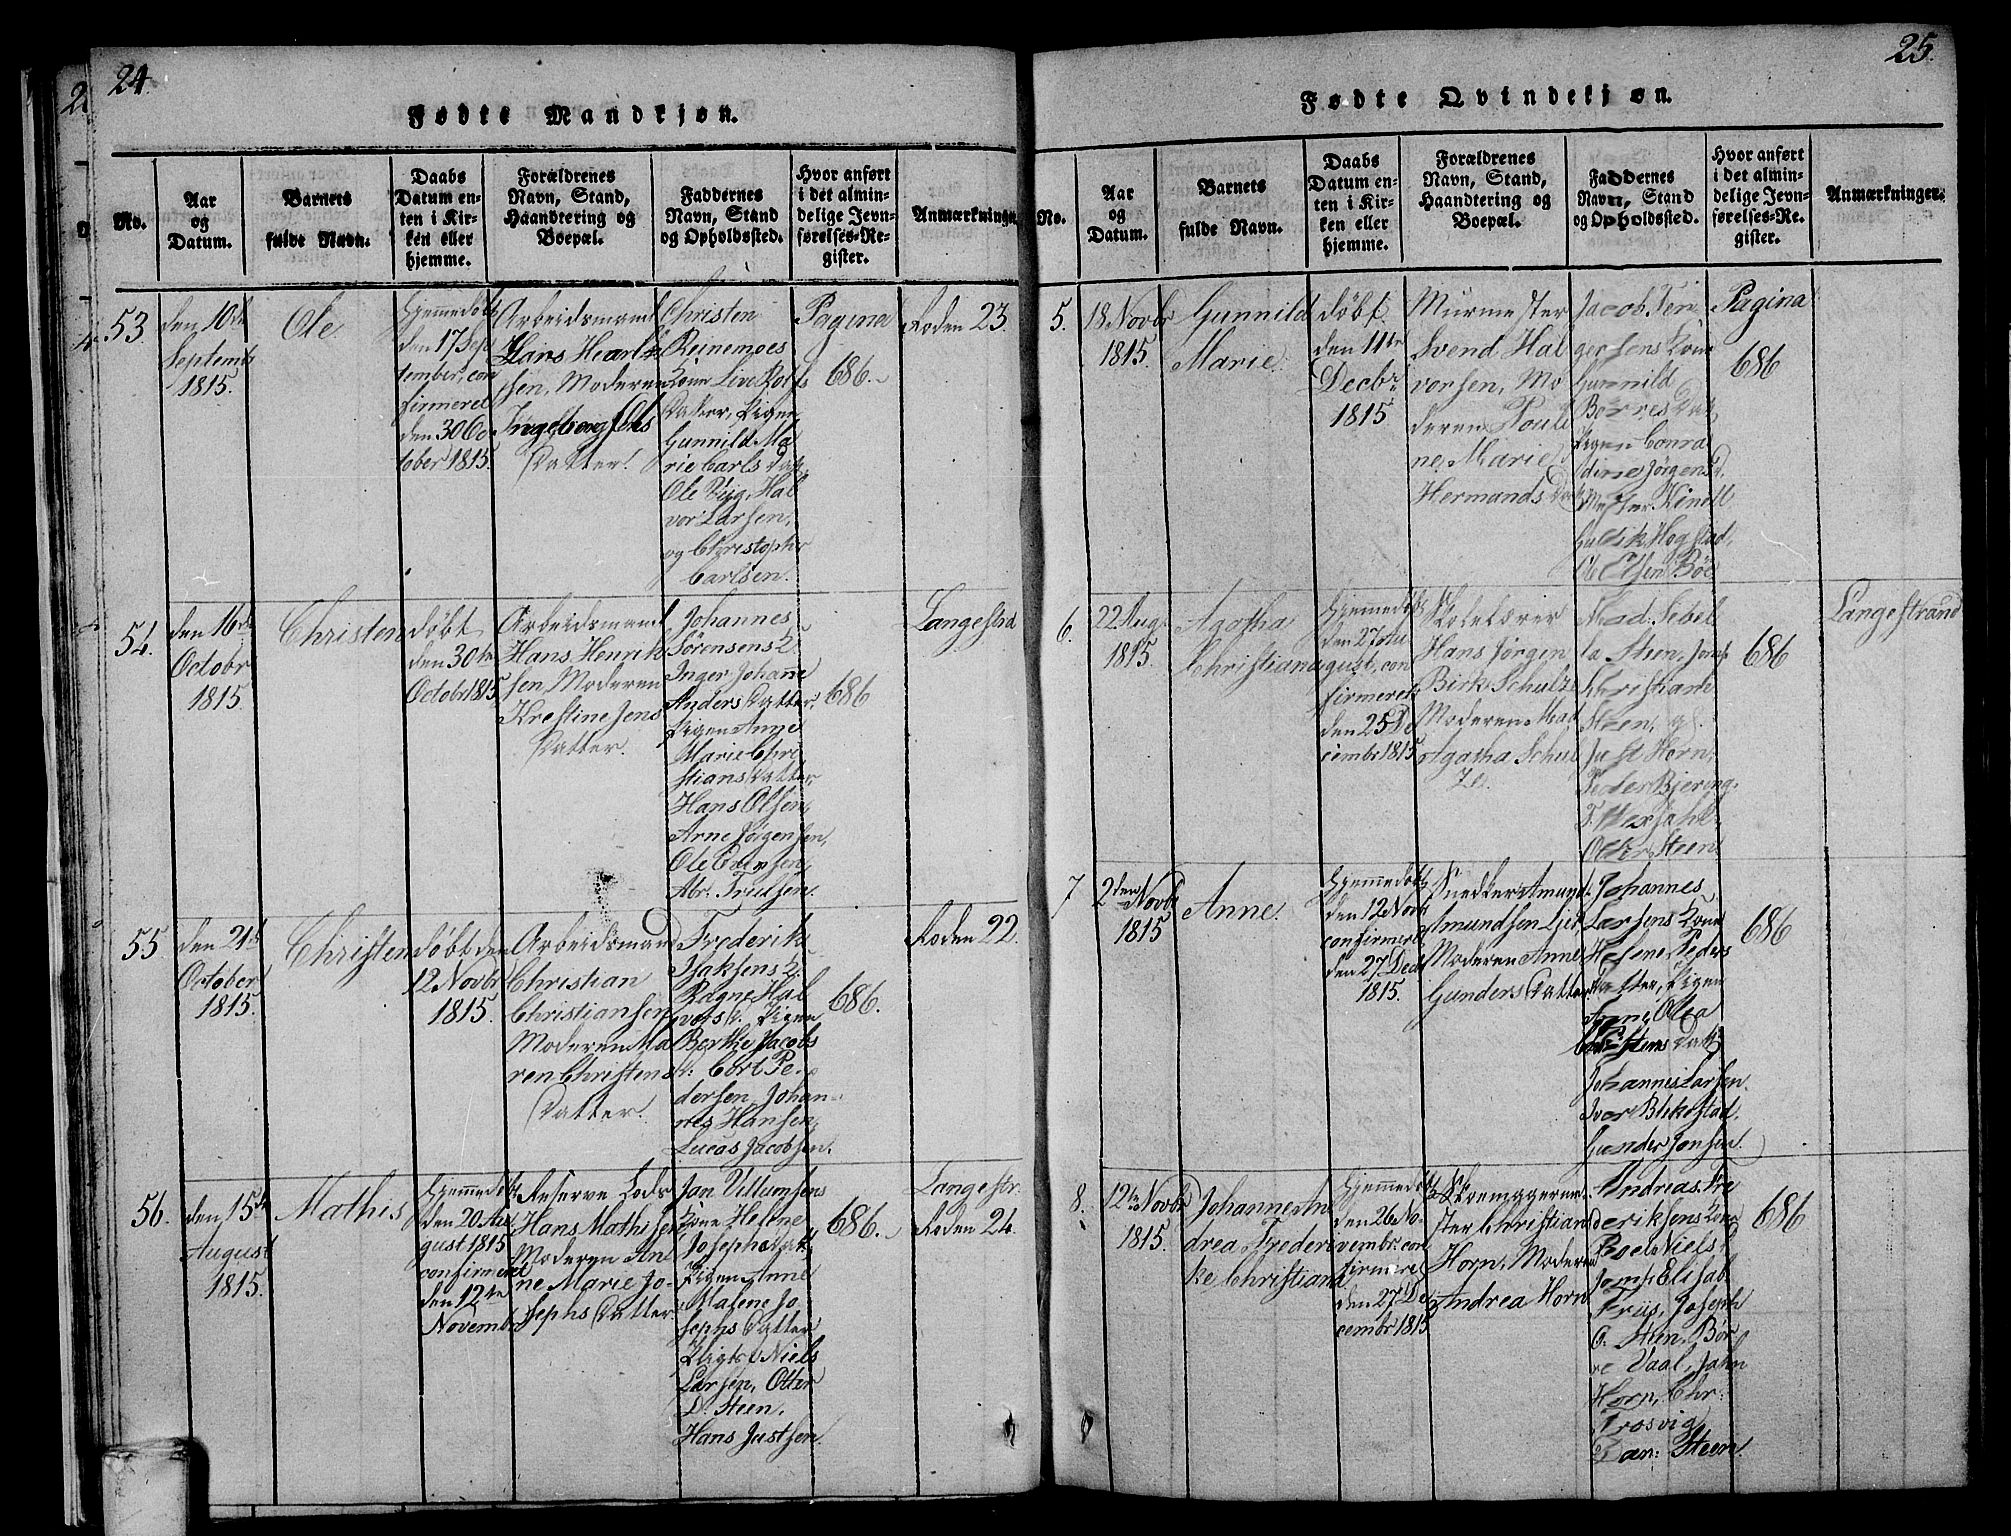 24.
Fødte Mandkjøn.
No.
Aar
og
Datum.
Barnets
fulde Navn.
Daabs
Datum en-
ten i Kir-
ken eller
hjemme.
Forældrenes
Navn, Stand,
Haandtering og
Boepæl.
Faddernes
Navn, Stand
og Opholdssted.
Hvor anført
i det almin-
delige Jevn-
førelses-Re-
gister.
Anmærkninger.
53.
den 10de
Septembr
1815.
Ole.
Hjemmedøbt
den 17 Sep
tember, con
firmeret
den 30 Oc
tober 1815.
Arbeidsmand
Hans
sen, Moderen
Ingeborg
Datter.
Christen
Reinemoes
Kone Live
Datter, Pigen
Gunnild Ma
rie Carls Dat
Ole Hal
vor Larsen,
og Christopher
Carlsen.
Pagina
686.
Roden 23.
54.
den 16de
Octobr
1815.
Christen
døbt
den 30te
Octobr 1815
Arbeidsmand
Hans Henrik
sen, Moderen
Kristine Jens
Datter.
Johannes
Sörensens
Inger Johane
Anders Datter,
Pigen Anne
Marie Chri
stians Datter
Hans Olsen,
Arne Jörgensen,
Ole
Abr. Trulsen.
686
Langestrd
55
den 21de
October
1815.
Christen
døbt den
12 Novbr
1815.
Arbeidsmand
Christian
Christiansen
Moderen Ma
ren Christens
Datter.
Frederik
Isaksens
Ragne Hal
vors D. Pigen
Berthe Jacobs
D: Cort Pe
dersen, Johan
nes Hansen,
Lucas Jacobsen.
686.
Roden 22.
56.
den 15de
August
1815.
Mathis
Hjemmedöbt
den 20 Au
gust 1815
confirmeret
den 12te
Novembr
Reserve Lods
Hans Mathisen
Moderen An
ne Marie Jo
sephs Datter
Jan Villumsens
Kone Helene
Josephs Dat
Pigen Anne
Malene Jo
sephs Datter
Niels
Larsen, Otter
D. Steen,
Hans Justsen.
686.
Langestr.
Roden 24.
25.
Fødte Qvindekjøn.
No.
Aar
og
Datum.
Barnets
fulde Navn.
Daabs
Datum en-
ten i Kir-
ken eller
hjemme.
Forældrenes
Navn, Stand,
Haandtering og
Boepæl.
Faddernes
Navn, Stand
og Opholdssted.
Hvor anført
i det almin-
delige Jevn-
førelses-Re-
gister.
Anmærkninger.
5.
18 Novbr
1815.
Gunnild
Marie.
døbt
den 11te
Decbr
1815.
Murmester
Svend Hal
vorsen, Mo
deren Pouli
ne Marie
Hermands
Jacob Ten
gersens Kone
Gunnild
Börres Dat,
Pigen Conra
dine Jörgens D.
Hogstad,
Ole Olsen Böe
Pagina
686
6.
22 Aug
1815.
Agatha
Christiana
Hjemmedøbt
den 27 Au
gust, con
firmeret
den 25 De
cembr 1815
Skolelærer
Hans Jörgen
Birk Schulze
Moderen Mad
Agatha Schul
ze.
Mad: Sebel
la Steen, Jomf
Christiane
Steen,
Just Horn,
Peder Bjering,
Steen
686
Langestrand
7
2den Novbr
1815
Anne.
Hjemmedøbt
den 12 Novb
confirmeret
den 27 Decb
1815.
Snedker Amund
Amundsen
Moderen Anne
Gunders Datter
Johannes
Larsens Kone
Helene Peders
Datter, Pigen
Anne Olea
Christens Datt
Johannes Larsen
Iver Blikstad,
Gunder Jonsen.
686
8.
12te Novbr
1815.
Johanne An
drea Frederi
ke Christiane
Hjemmedøbt
den 26 No
vembr. con
firmeret
den 27 De
cembr 1815
Skoemagerme
ster Christian
Horn, Moderen
Andrea Horn
Andreas Fre
deriksens Kone
Boel Niels D
Jomf: Elisab.
Friis, Joseph
C. Steen, Bör
re Vaal, Jahn
Horn, Chr:
Trosvig
Dan: Steen
686